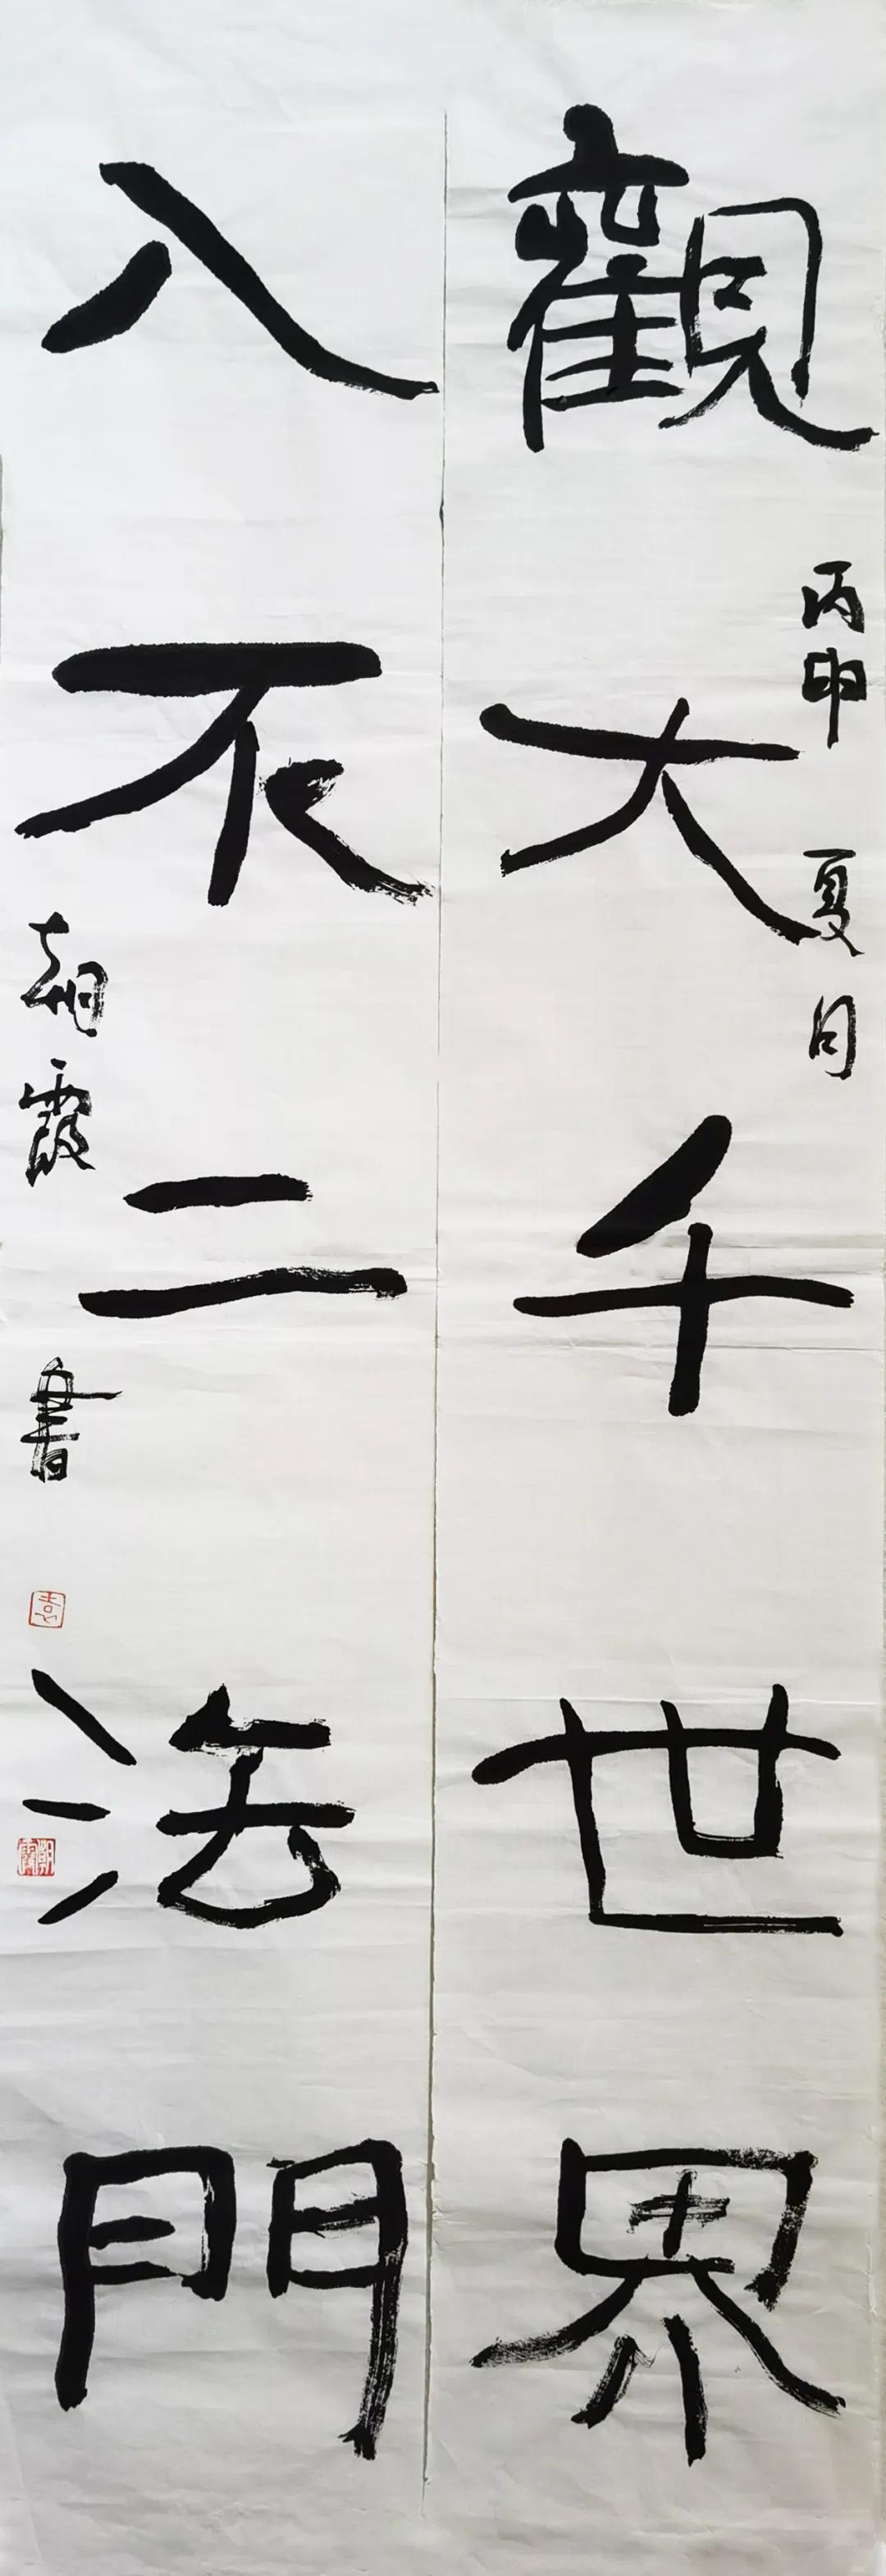 觀大千世界
丙申夏月
入不二法門
朝霞書
袁
朝霞